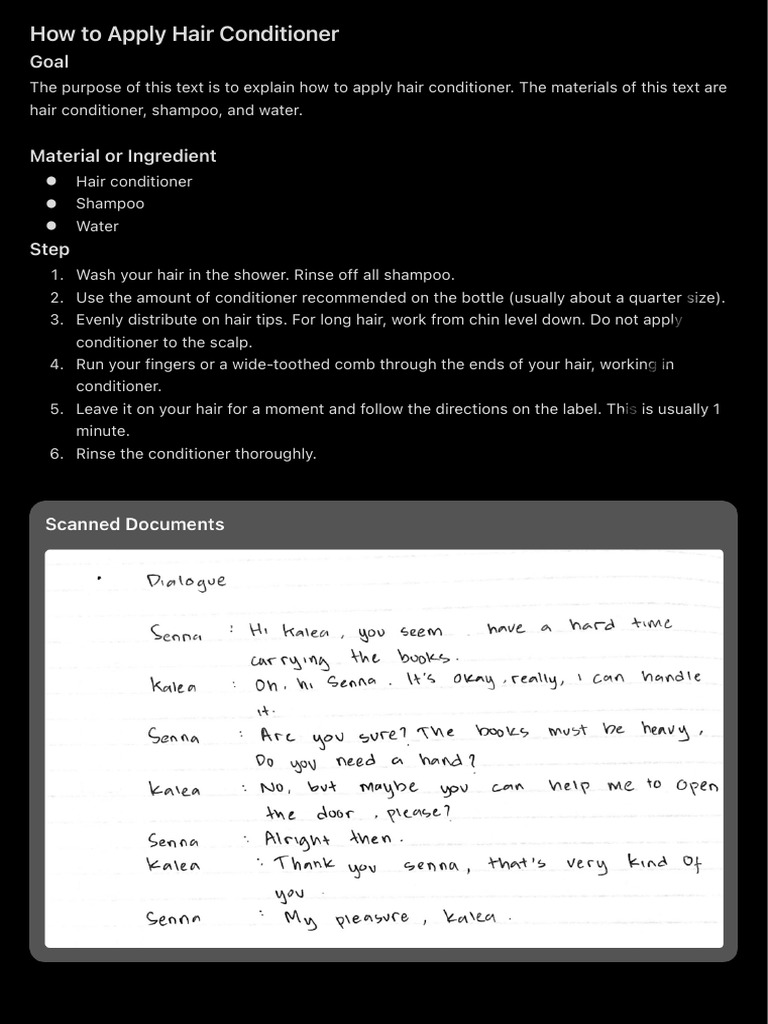 How to Apply Hair Conditioner
Goal
The purpose of this text is to explain how to apply hair conditioner. The materials of this text are
hair conditioner, shampoo, and water.
Material or Ingredient
● Hair conditioner
● Shampoo
● Water
Step
1. Wash your hair in the shower. Rinse off all shampoo.
2. Use the amount of conditioner recommended on the bottle (usually about a quarter size).
3. Evenly distribute on hair tips. For long hair, work from chin level down. Do not apply
conditioner to the scalp.
4. Run your fingers or a wide-toothed comb through the ends of your hair, working in
conditioner.
5. Leave it on your hair for a moment and follow the directions on the label. This is usually 1
minute.
6. Rinse the conditioner thoroughly.
Scanned Documents
• Dialogue
Senna : Hi Kalea, you seem have a hard time
carrying the books.
Kalea : Oh, hi Senna. It's okay, really, i can handle
it.
Senna : Are you sure? The books must be heavy,
Do you need a hand?
Kalea : No, but maybe you can help me to open
the door, please?
Senna : Alright then.
Kalea : Thank you senna, that's very kind of
you.
Senna : My pleasure, Kalea.